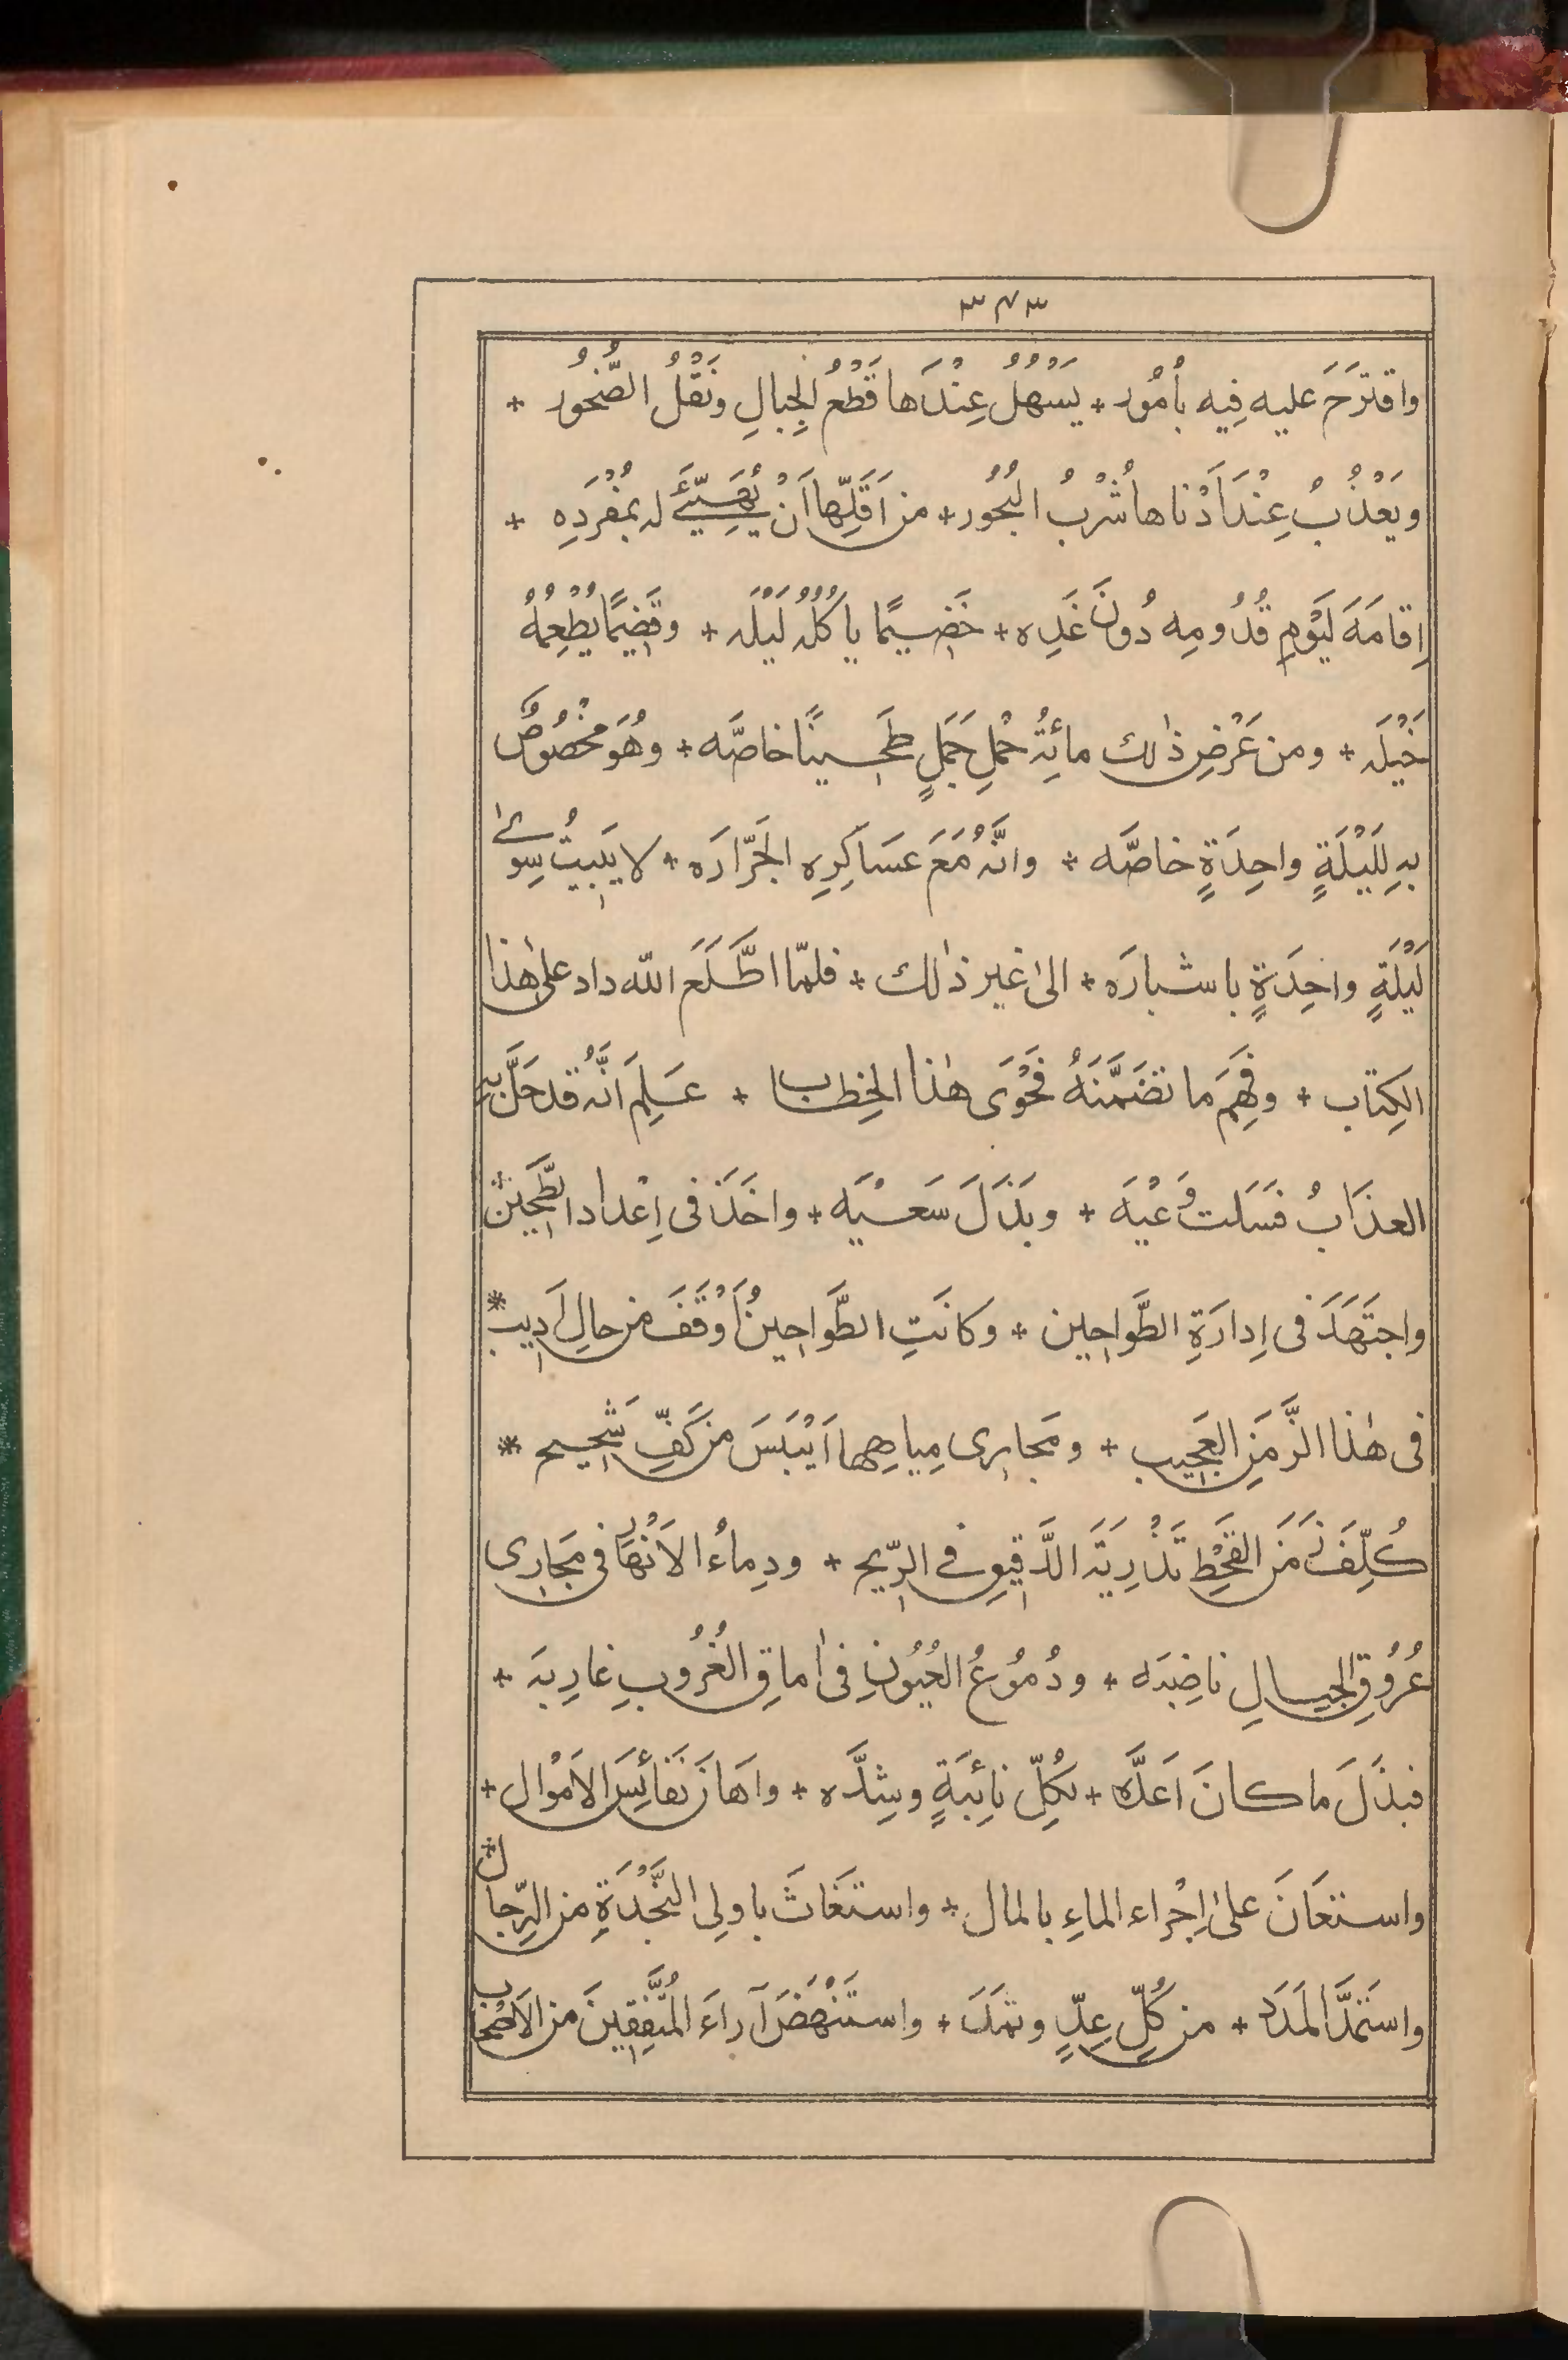 ٣٧٣
واقترَحَ عليه فِيه بأُمُور + يَسْهُلُ عِنْدَها قَطْعُ الجِبالِ ونَقْلُ الصُّخُور +
ويَعْذُبُ عِنْدَ اَدْناها شُرْبُ البُحُور + من اَقَلِّها اَنْ يُهَيِّئَ له بمُفْرَدِه +
اِقامَةَ لِيَوْمِ قُدُومِه دُونَ غَدِه + خَضِيمًا يأكُلُه لَيْلَه + وقَضِيمًا يُطْعِمُهُ
خَيْلَه + ومن عَرْضِ ذٰلك مائةُ حْملِ جَمَلٍ طَحِينًا خاصَّه + وهُوَ مَخْصُوصٌ
بهِ لِلَيْلَةٍ واحِدَةٍ خاصَّه + وانَّهُ مَعَ عسَاكِرِه الجَرّارَه + لا يَبِيتُ سِوىٰ
لَيْلَةٍ واحِدَةٍ باشبارَه + الىٰ غير ذٰلك + فلمّا اطَّلَعَ الله داد علىٰ هٰذا
الكِتاب + وفَهِمَ ما تضَمَّنَهُ فَحْوَى هٰذا الخِطاب + عَلِمَ انَّه قد حَلَّ بهِ
العذَابُ فسَلَت وُعْيَه + وبَذَلَ سَعْيَه + واخَذَ فى اِعْداد الطَّحِين +
واجتَهَدَ فى اِدارَةِ الطَّواحِين + وكانَتِ الطَّواحِينُ اَوْقَفَ من حالِ اَدِيب *
فى هٰذا الزَّمَنِ العَجِيب + ومَجارِى مِياهِها اَيْبَسَ من كَفِّ شَحِيح *
كُلِّفَ زَمَنَ القَحْطِ تَذْرِيَةَ الدَّقِيقِ فى الرِّيح + ودِماءُ الاَنْهارِ فى مَجَارِى
عُرُوقِ الجِبالِ ناضِبَه + ودُمُوعُ العُيُونِ فى اٰماقِ الغُرُوبِ غارِبَه +
فبذَلَ ما كانَ اَعَدَّه + لكُلِّ نائِبَةٍ وشِدَّه + واَهانَ نَفائسَ الاَمْوال +
واستعَانَ علىٰ اِجْراء الماءِ بالمال + واستَغَاثَ باولِى النَّجْدَةِ من الرِّجال +
واستَمَدَّ المَدَد + من كُلِّ عِدٍّ وثَمَد + واستَنْهَضَ آراءَ المُتَّفِقِينَ من الاَصْحاب